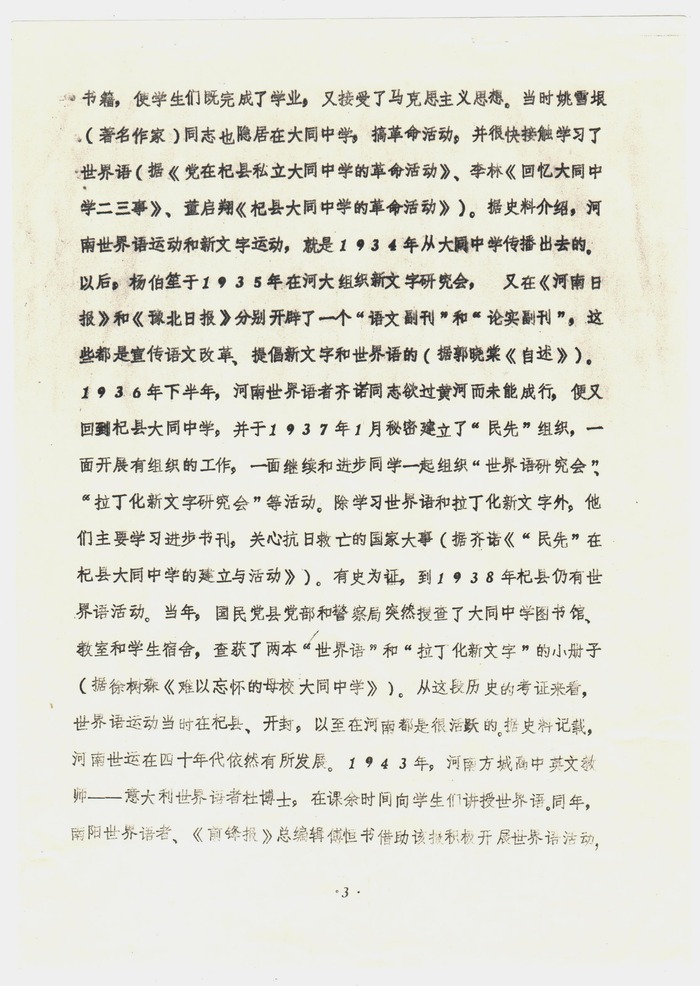 书籍，使学生们既完成了学业，又接受了马克思主义思想。当时姚雪垠
（著名作家）同志也隐居在大同中学，搞革命活动，并很快接触学习了
世界语（据《党在杞县私立大同中学的革命活动》、李林《回忆大同中
学二三事》、董启翔《杞县大同中学的革命活动》）。据史料介绍，河
南世界语运动和新文字运动，就是1934年从大同中学传播出去的。
以后，杨伯笙于1935年在河大组织新文字研究会， 又在《河南日
报》和《豫北日报》分别开辟了一个“语文副刊”和“论实副刊”，这
些都是宣传语文改革、提倡新文字和世界语的（据郭晓棠《自述》）。
1936年下半年，河南世界语者齐诺同志欲过黄河而未能成行，便又
回到杞县大同中学，并于1937年1月秘密建立了“民先”组织，一
面开展有组织的工作，一面继续和进步同学一起组织“世界语研究会”、
“拉丁化新文字研究会”等活动。除学习世界语和拉丁化新文字外，他
们主要学习进步书刊，关心抗日救亡的国家大事（据齐诺《“民先”在
杞县大同中学的建立与活动》）。有史为证，到1938年杞县仍有世
界语活动。当年，国民党县党部和警察局突然搜查了大同中学图书馆、
教室和学生宿舍，查获了两本“世界语”和“拉丁化新文字”的小册子
（据徐树森《难以忘怀的母校大同中学》）。从这段历史的考证来看，
世界语运动当时在杞县、开封，以至在河南都是很活跃的。据史料记载，
河南世运在四十年代依然有所发展。1943年，河南方城高中英文教
师——意大利世界语者杜博士，在课余时间向学生们讲授世界语。同年，
南阳世界语者、《前锋报》总编辑傅恒书借助该报积极开展世界语活动，
·3·